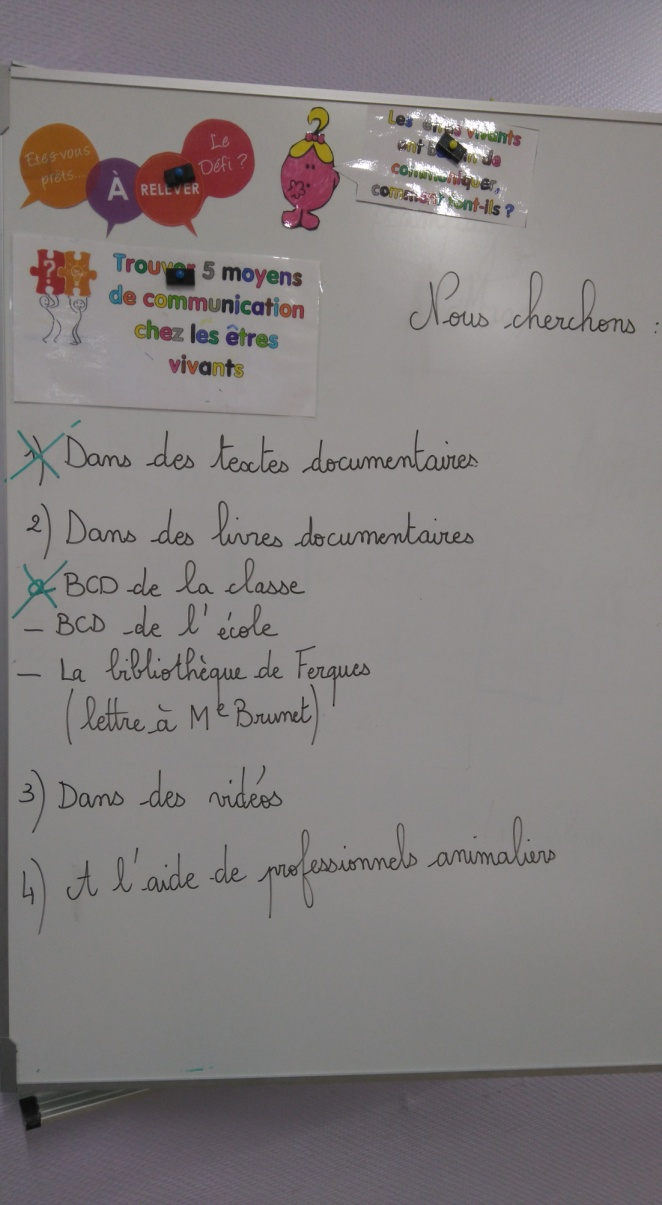 Etes-vous
prêts...
À
RELEVER
Le
Défi ?
Les êtres vivants
ont besoin de
communiquer,
comment font-ils ?
Trouver 5 moyens
de communication
chez les êtres
vivants
Nous cherchons :
1) Dans des textes documentaires
2) Dans des livres documentaires
- BCD de la classe
- BCD de l'école
- La bibliothèque de Ferques
(lettre à Me Brunet)
3) Dans des vidéos
4) A l'aide de professionnels animaliers